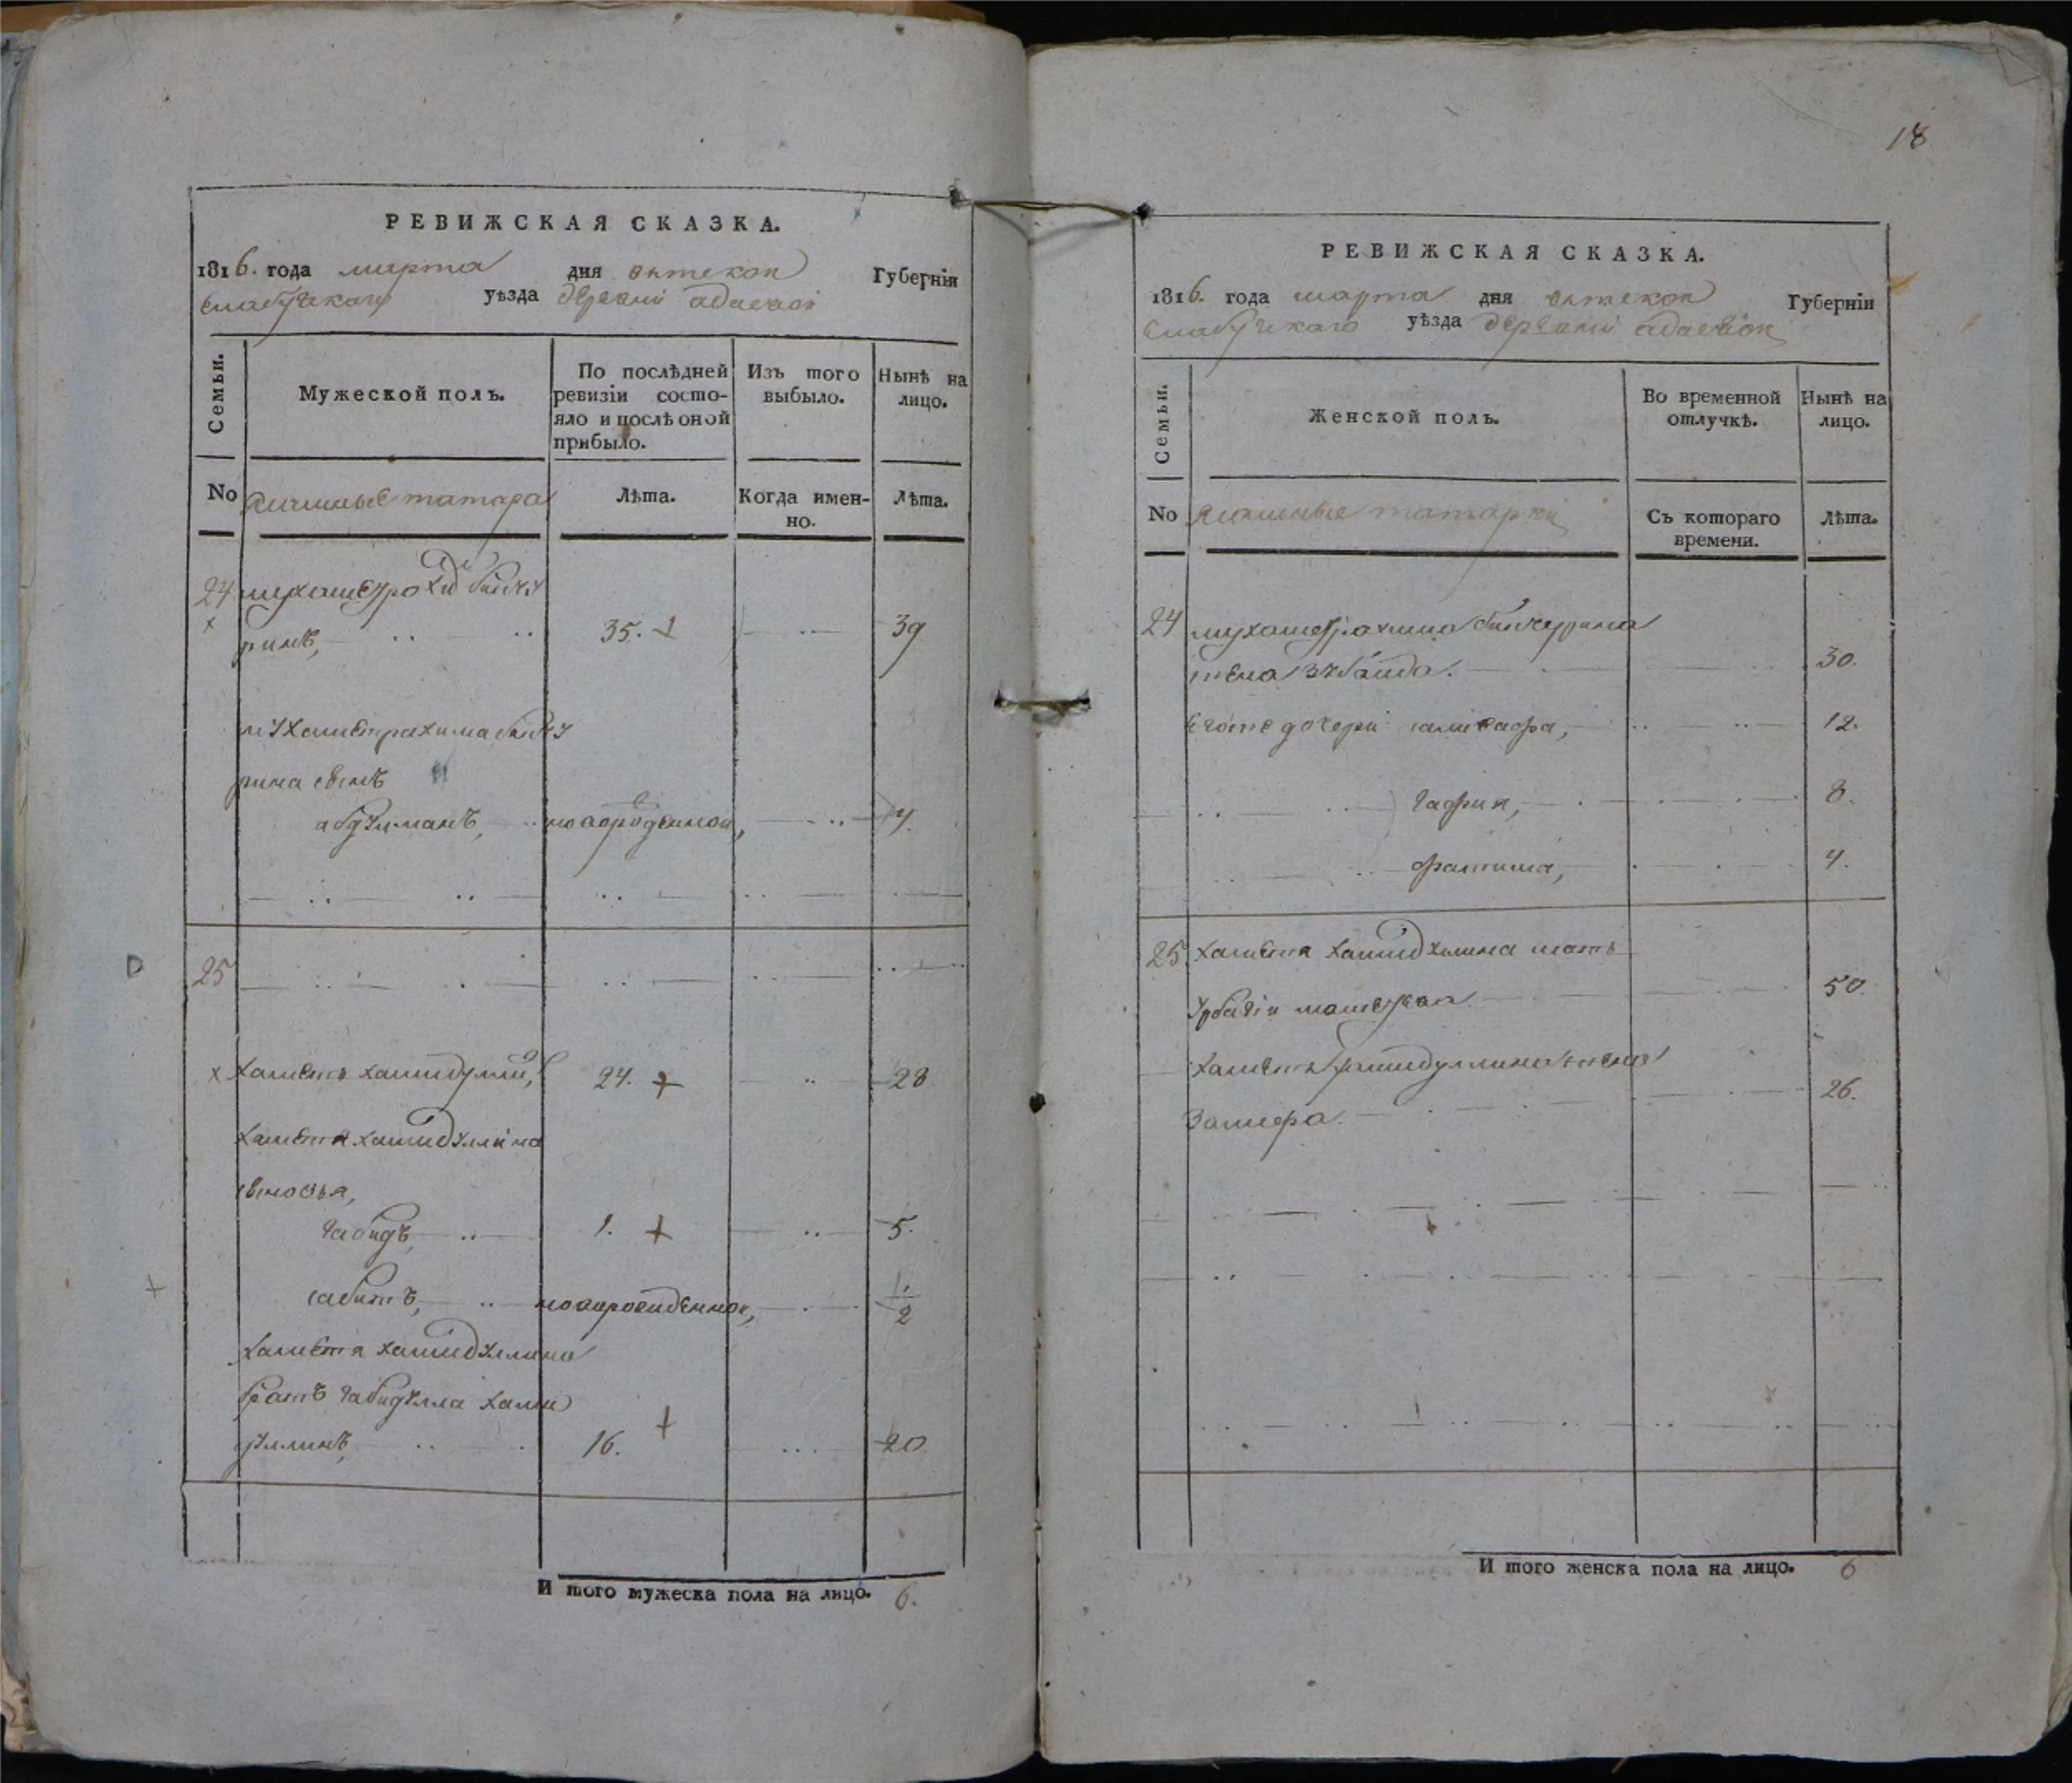 РЕВИЖСКАЯ СКАЗКА.
1816. года марта дня вятской Губерніи
елабужскаго уѣзда деревни адаевой
Семьи.
Мужеской полъ.
По послѣдней ревизіи состо-
яло и послѣ оной
прибыло.
Изъ того
выбыло.
Нынѣ на
лицо.
No татара
Лѣта.
Когда имен-
но.
Лѣта.
24 бикчу
ринъ, 35. 39
мухаметрахима бикчу
рина сынъ
абдулманъ, новорожденной, 4.
25
хаметъ хамидуллин, 24. 28
хаметя хамидуллина
сыновья,
габидъ, 1. 5.
сабитъ, новорожденной, 1/2
хаметя хамидуллина
братъ габидулла хами
дуллинъ, 16. 20
И того мужеска пола на лицо. 6.
18
РЕВИЖСКАЯ СКАЗКА.
1816. года марта дня вятской Губерніи
елабужскаго уѣзда деревни адаевой
Семьи.
Женской полъ.
Во временной
отлучкѣ.
Нынѣ на
лицо.
No татарки
Съ котораго
времени.
Лѣта.
24 мухаметрахима бикчурина
жена зубаида. 30.
егоже дочери 12.
гафия, 8.
фатима, 4.
25. хаметя хамидуллина мать
50.
хаметя хамидуллина жена
Замера. 26.
И того женска пола на лицо. 6